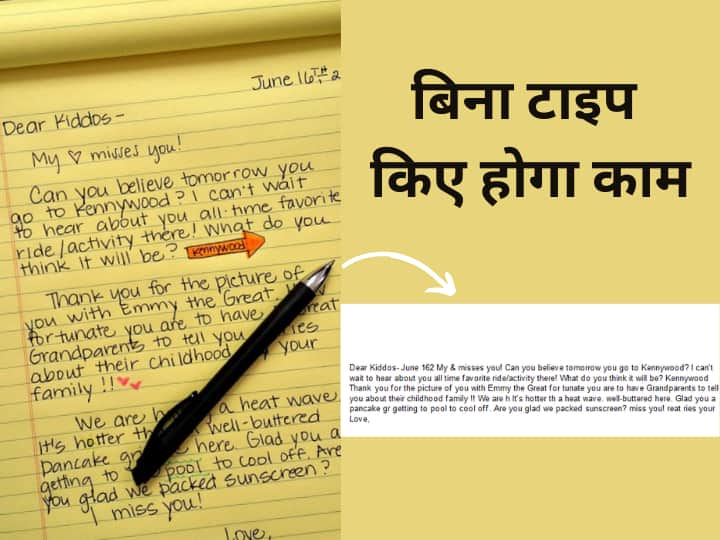 June 16TH 2
Dear Kiddos-
My ♡ misses you!
Can you believe tomorrow you
go to Kennywood? I can't wait
to hear about you all-time favorite
ride/activity there! What do you
think it will be? Kennywood
Thank you for the picture of
you with Emmy the Great.
fortunate you are to have
Grandparents to tell you ries
about their childhood your
family!!
We are h a heat wave.
It's hotter th well-buttered
pancake gr here. Glad you a
getting to pool to cool off. Are
you glad we packed sunscreen?
I miss you!
Love,
बिना टाइप
किए होगा काम
Dear Kiddos- June 162 My & misses you! Can you believe tomorrow you go to Kennywood? I can't
wait to hear about you all time favorite ride/activity there! What do you think it will be? Kennywood
Thank you for the picture of you with Emmy the Great for tunate you are to have Grandparents to tell
you about their childhood family !! We are h It's hotter th a heat wave. well-buttered here. Glad you a
pancake gr getting to pool to cool off. Are you glad we packed sunscreen? miss you! reat ries your
Love,